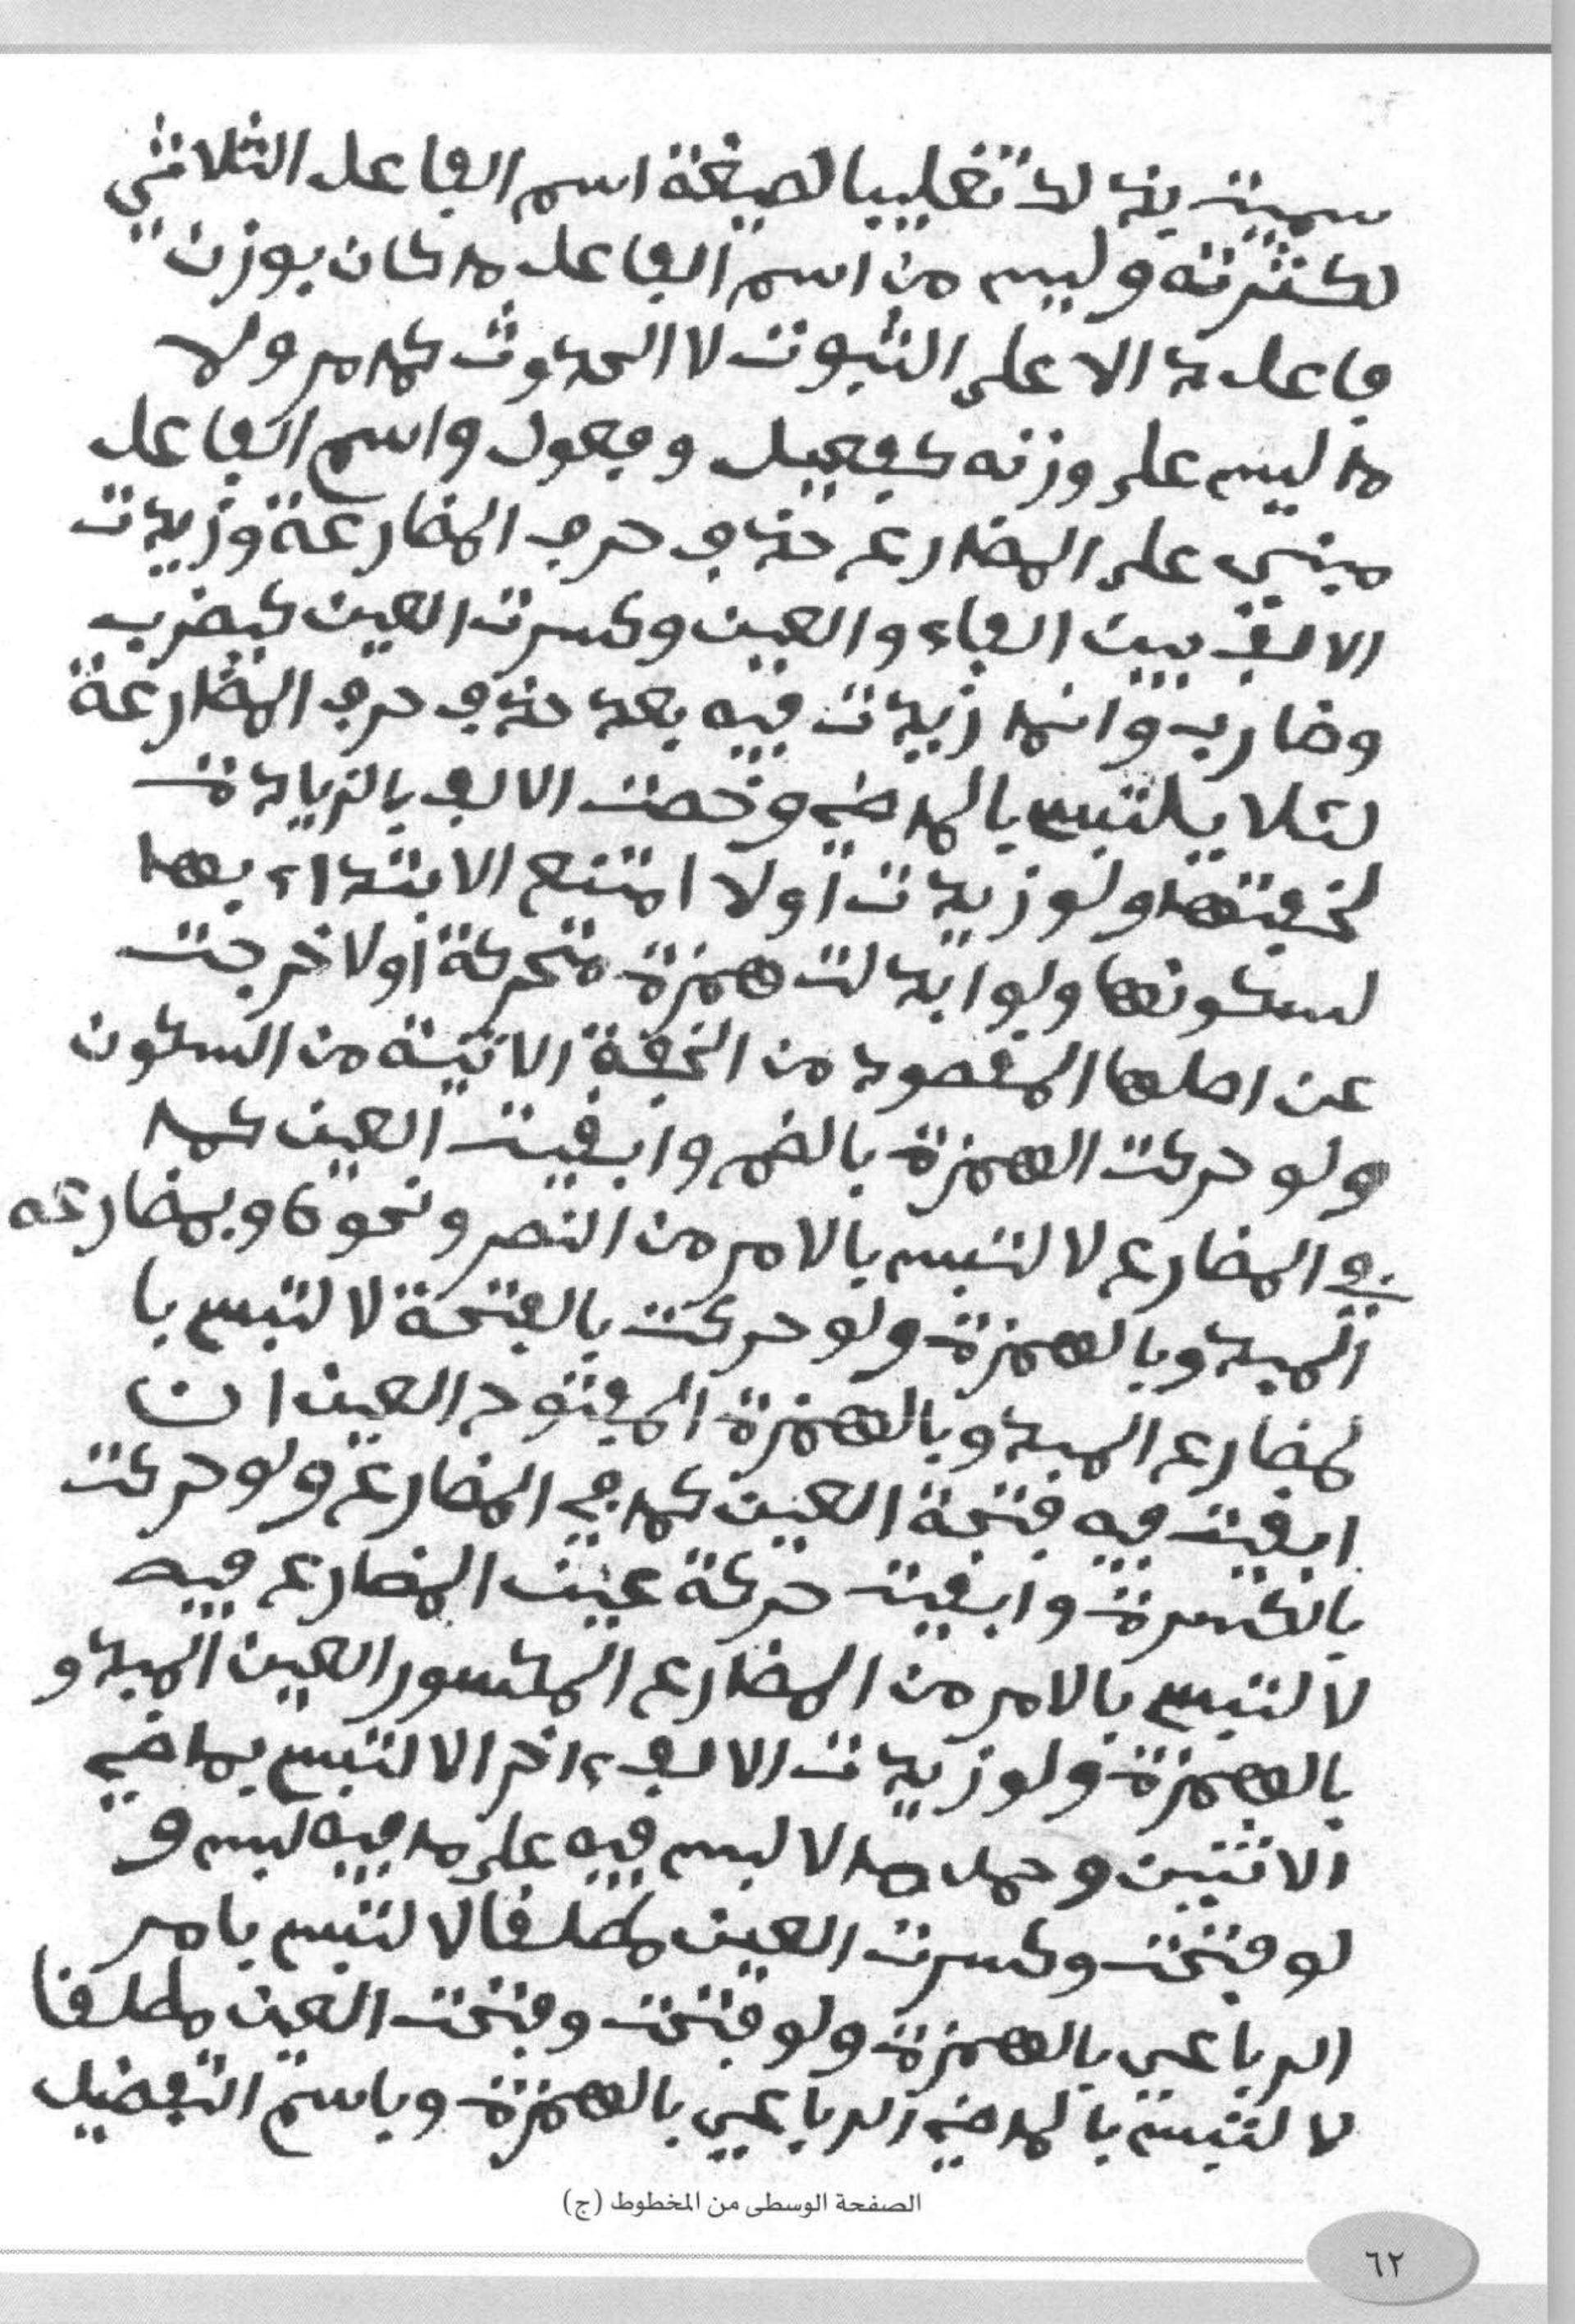 سميت بذلك تغليبا لصيغة اسم الفاعل الثلاثي
لكثرته وليس من اسم الفاعل ما كان بوزن
فاعل دالا على الثبوت لا الحدوث كما مر ولا
ما ليس على وزنه كفعيل وفعول واسم الفاعل
مبني على المضارع حذف حرف المضارعة وزيدت
الالف بين الفاء والعين وكسرت العين كيضرب
وضارب وانما زيدت فيه بعد حذف حرف المضارعة
لئلا يلتبس بالماضي وخصت الالف بالزيادة
لخفتها ولو زيدت أولا امتنع الابتداء بها
لسكونها ولو ابدلت همزة متحركة أولا خرجت
عن اصلها المقصود من الخفة الاتية من السكون
ولو حركت الهمزة بالضم وابقيت العين كما
في المضارع لالتبس بالامر من النصر ونحوه وبمضارعه
المبدو بالهمزة ولو حركت بالفتحة لالتبس با
لمضارع المبدو بالهمزة المفتوح العين ان
ابقيت فيه فتحة العين كما في المضارع ولو حركت
بالكسرة وابقيت حركة عين المضارع فيه
لالتبس بالامر من المضارع المكسور العين المبدو
بالهمزة ولو زيدت الالف ءاخرا لالتبس بماضي
الاثنين وحمل ما لا لبس فيه على ما فيه لبس و
لو فتحت وكسرت العين مطلقا لالتبس بامر
الرباعي بالهمزة ولو فتحت وفتحت العين مطلقا
لالتبس بالماضي الرباعي بالهمزة وباسم التفضيل
الصفحة الوسطى من المخطوط (ج)
٦٢